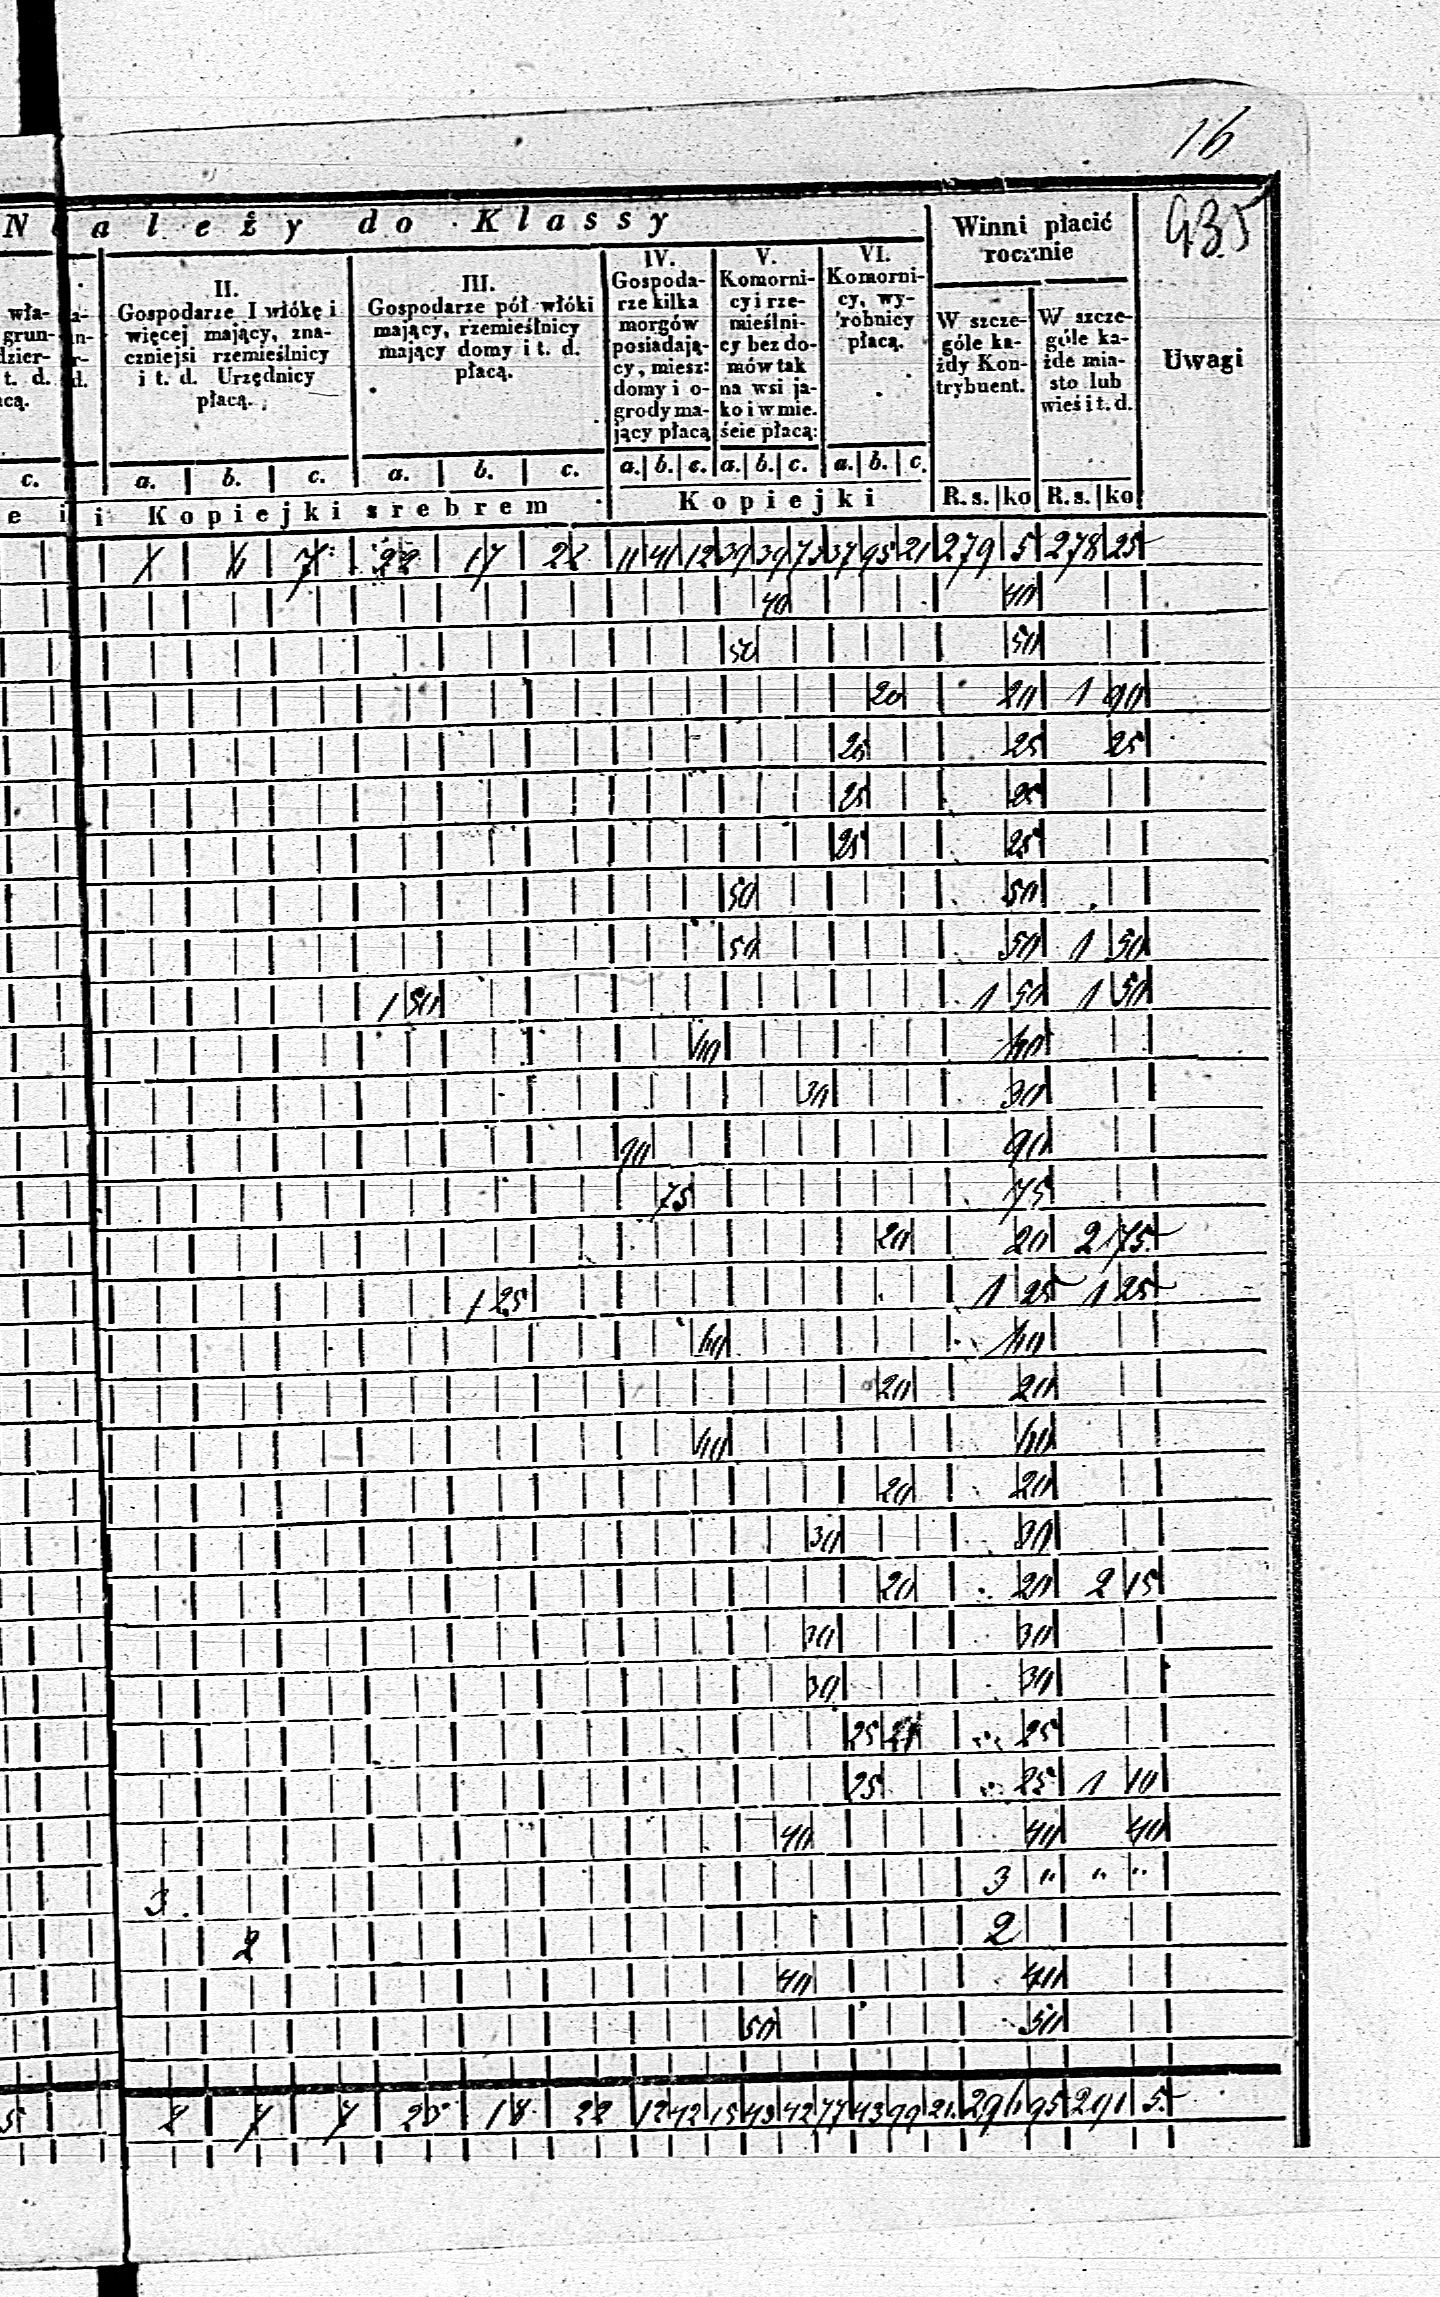 16
N a l e ż y do Klassy
Winni płacić rocznie
935
Uwagi
wła-
grun-
dzier-
t. d.
acą.
II.
Gospodarze I włókę i
więcej mający, zna-
czniejsi rzemieślnicy
i t. d. Urzędnicy
płacą.
III.
Gospodarze pół włóki
mający, rzemieślnicy
mający domy i t. d.
płacą.
IV.
Gospoda-
rze kilka
morgów
posiadają-
cy, miesz:
domy i o-
grody ma-
jący płacą
V.
Komorni-
cy i rze-
mieślni-
cy bez do-
mów tak
na wsi ja-
ko i w mie.
ście płacą:
VI.
Komorni-
cy, wy-
robnicy
płacą.
W szcze-
góle ka-
żdy Kon-
trybuent.
W szcze-
góle ka-
żde mia-
sto lub
wieś i t. d.
c. a. b. c. a. b. c. a. b. c. a. b. c. a. b. c.
e i i Kopiejki srebrem Kopiejki R. s. ko R. s. ko
22 17 22 11 41 12 39 39 73 37 95 21 279 5 278 25
40 40
50 50
20 20 1 90
25 25 25
25 25
25 25
50 50
50 50 1 50
1 50 1 50 1 50
60 60
30 30
90 90
75 75
20 20 2 75
1 25 1 25 1 25
60 60
20 20
60 60
20 20
30 30
20 20 2 15
30 30
30 30
25 25
25 25 1 10
40 40 40
3 3 " " "
2 2
40 40
50 50
5 8 7 7 23 18 22 12 42 15 43 42 77 43 99 21 296 95 291 5